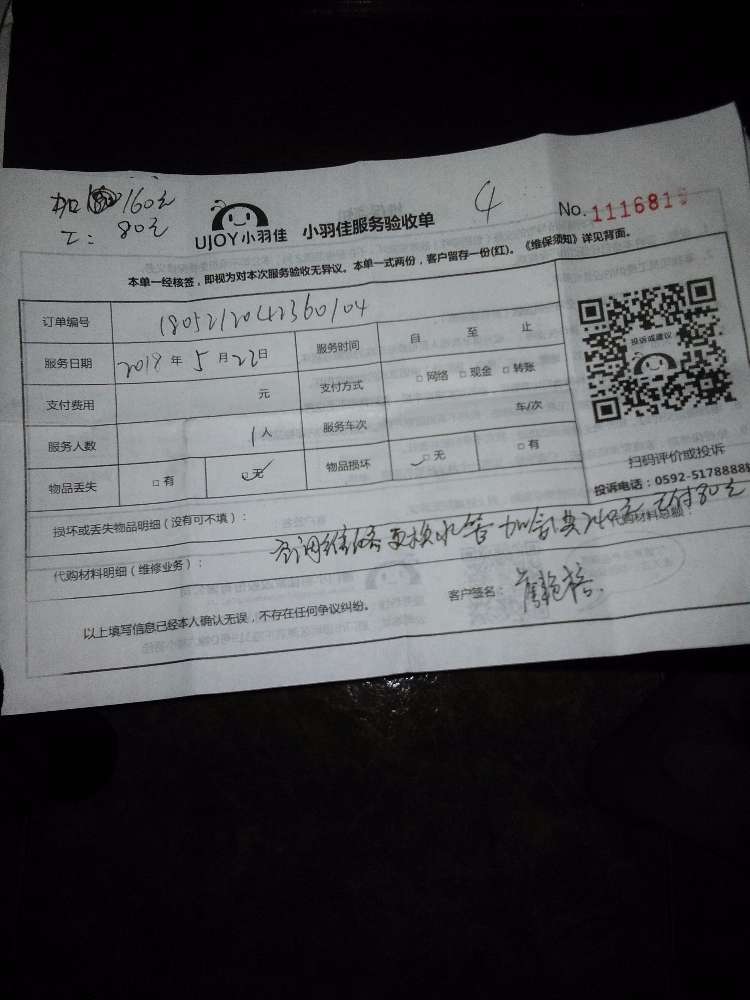 加 160元
工: 80元
UJOY小羽佳 小羽佳服务验收单
4
No. 1116819
本单一经核签，即视为对本次服务验收无异议。本单一式两份，客户留存一份(红)。《维保须知》详见背面。
订单编号
服务日期 2018 年 5 月 22日 服务时间 自 至 止
支付费用 元 支付方式 □ 网络 □ 现金 □ 转账
服务人数 1 人 服务车次 车/次
物品丢失 □ 有 □无 物品损坏 □ 无 □ 有
投诉或建议
扫码评价或投诉
投诉电话：0592-5178888
损坏或丢失物品明细 (没有可不填)：
代购材料明细 (维修业务)： 空调维修更换水管 加 共240元 已付80元
代购材料总额：
以上填写信息已经本人确认无误，不存在任何争议纠纷。 客户签名：